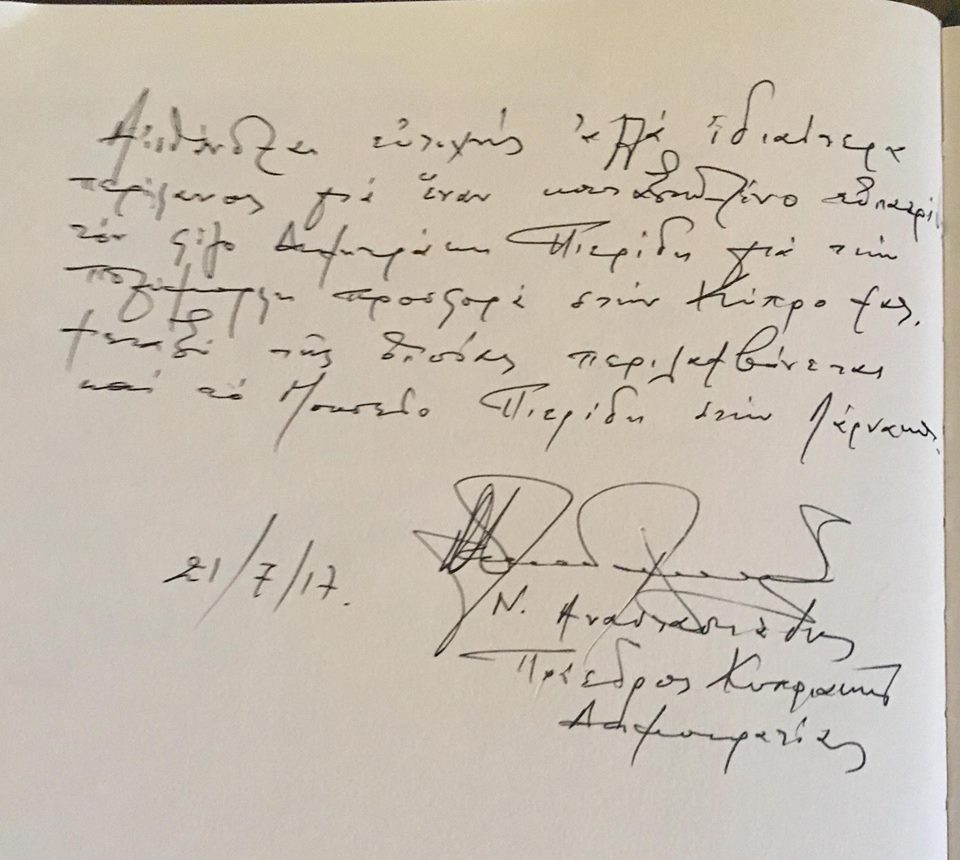 Αἰσθάνομαι εὐτυχής ἀλλά ἰδιαίτερα
περήφανος γιά ἕναν καταξιωμένο
τόν φίλο Δημητράκη Πιερίδη γιά τήν
πολύμορφη προσφορά στήν Κύπρο μας,
μεταξύ τῆς ὁποίας περιλαμβάνεται
καί τό Μουσεῖο Πιερίδη στήν Λάρνακα.
21/7/17.
Ν. Αναστασιάδης
Πρόεδρος Κυπριακής
Δημοκρατίας